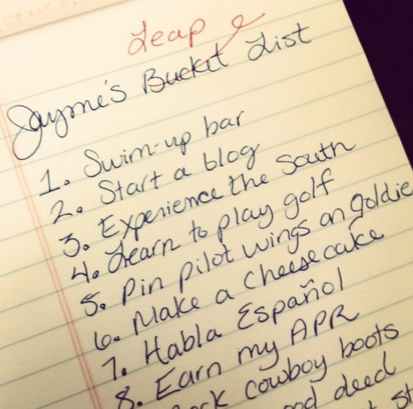 Leap
Jayme's Bucket List
1. Swim-up bar
2. Start a blog
3. Experience the South
4. Learn to play golf
5. Pin pilot wings on Goldie
6. Make a cheesecake
7. Habla Español
8. Earn my APR
cowboy boots
deed